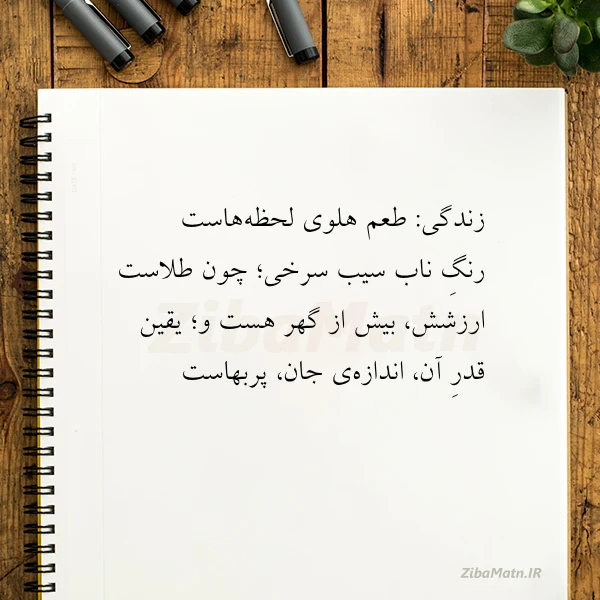 زندگی: طعم هلوی لحظه‌هاست
رنگِ ناب سیب سرخی؛ چون طلاست
ارزشش، بیش از گهر هست و؛ یقین
قدرِ آن، اندازه‌ی جان، پربهاست
ZibaMatn
ZibaMatn.IR